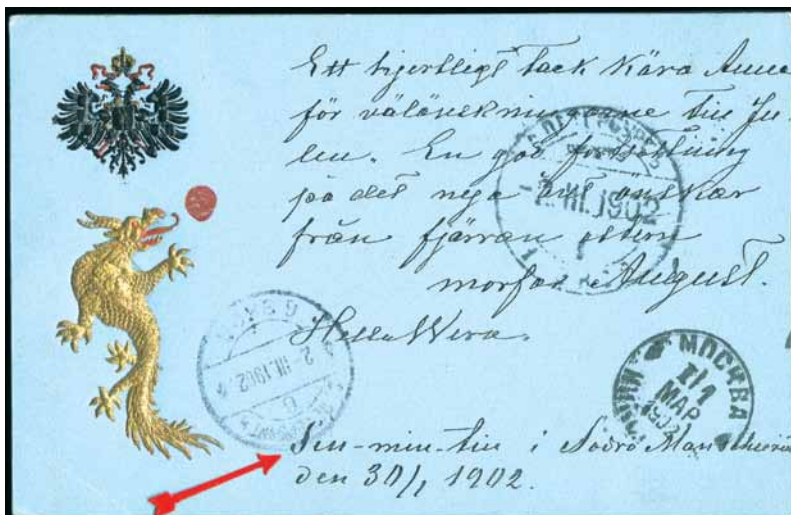 Ett hjertligt tack Kära Anna
för välönskningarne till Ju-
len. En god fortsättning
på det nya året önskar
från fjärran östern
morfar August.
Helsa Wera.
Sin-min-tin i Södra Manschuri
den 30/1 1902.
-2.III.1902
2 III.1902
МОСКВА
I/1
МАР
1902